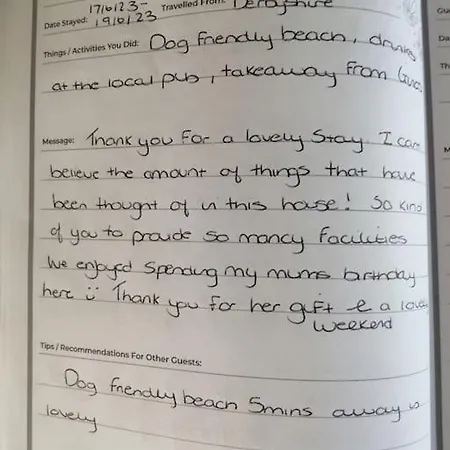 17/6/23 - Travelled From: Derbyshire
Date Stayed: 19/6/23
Things / Activities You Did: Dog friendly beach, drinks
at the local pub, takeaway from
Message: Thank you for a lovely stay. I can
believe the amount of things that have
been thought of in this house! So kind
of you to provide so many facilities
We enjoyed spending my mums birthday
here ü Thank you for her gift & a
weekend
Tips / Recommendations For Other Guests:
Dog friendly beach 5mins away is
lovely